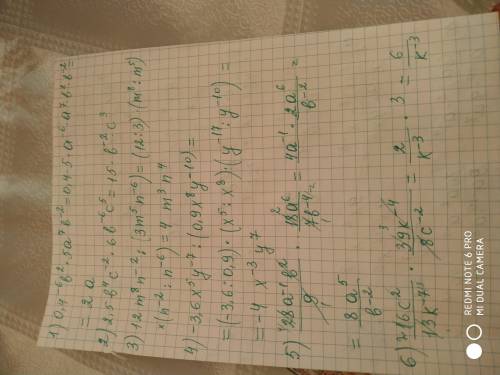 1) 0,4a⁻⁶b² · 5a⁷b⁻² = 0,4·5·a⁻⁶·a⁷b²b⁻² =
= 2a
2) 2,5·b⁴c⁻² · 6b⁻⁶c⁵ = 15·b⁻²c³
3) 12m⁸n⁻² : (3m⁵n⁻⁶) = (12:3)·(m⁸:m⁵)
×(n⁻²:n⁻⁶) = 4 m³n⁴
4) -3,6x⁵y⁻¹⁷ : (0,9x⁸y⁻¹⁰) =
= (-3,6:0,9)·(x⁵:x⁸)·(y⁻¹⁷:y⁻¹⁰) =
= -4 x⁻³y⁷
5) 28a⁻¹b²/9 · 18a⁶/7b⁻⁴ = 4a⁻¹·2a⁶/b⁻² =
= 8a⁵/b⁻²
6) 16c²/13k⁻⁷ · 39k⁻⁴/8c⁻² = 2/k⁻³ · 3 = 6/k⁻³
REDMI NOTE 6 PRO
MI DUAL CAMERA